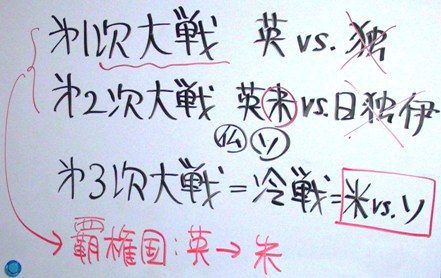 第1次大戦 英 vs. 独
第2次大戦 英米 vs. 日独伊
仏 ソ
第3次大戦=冷戦=米 vs. ソ
覇権国:英→米